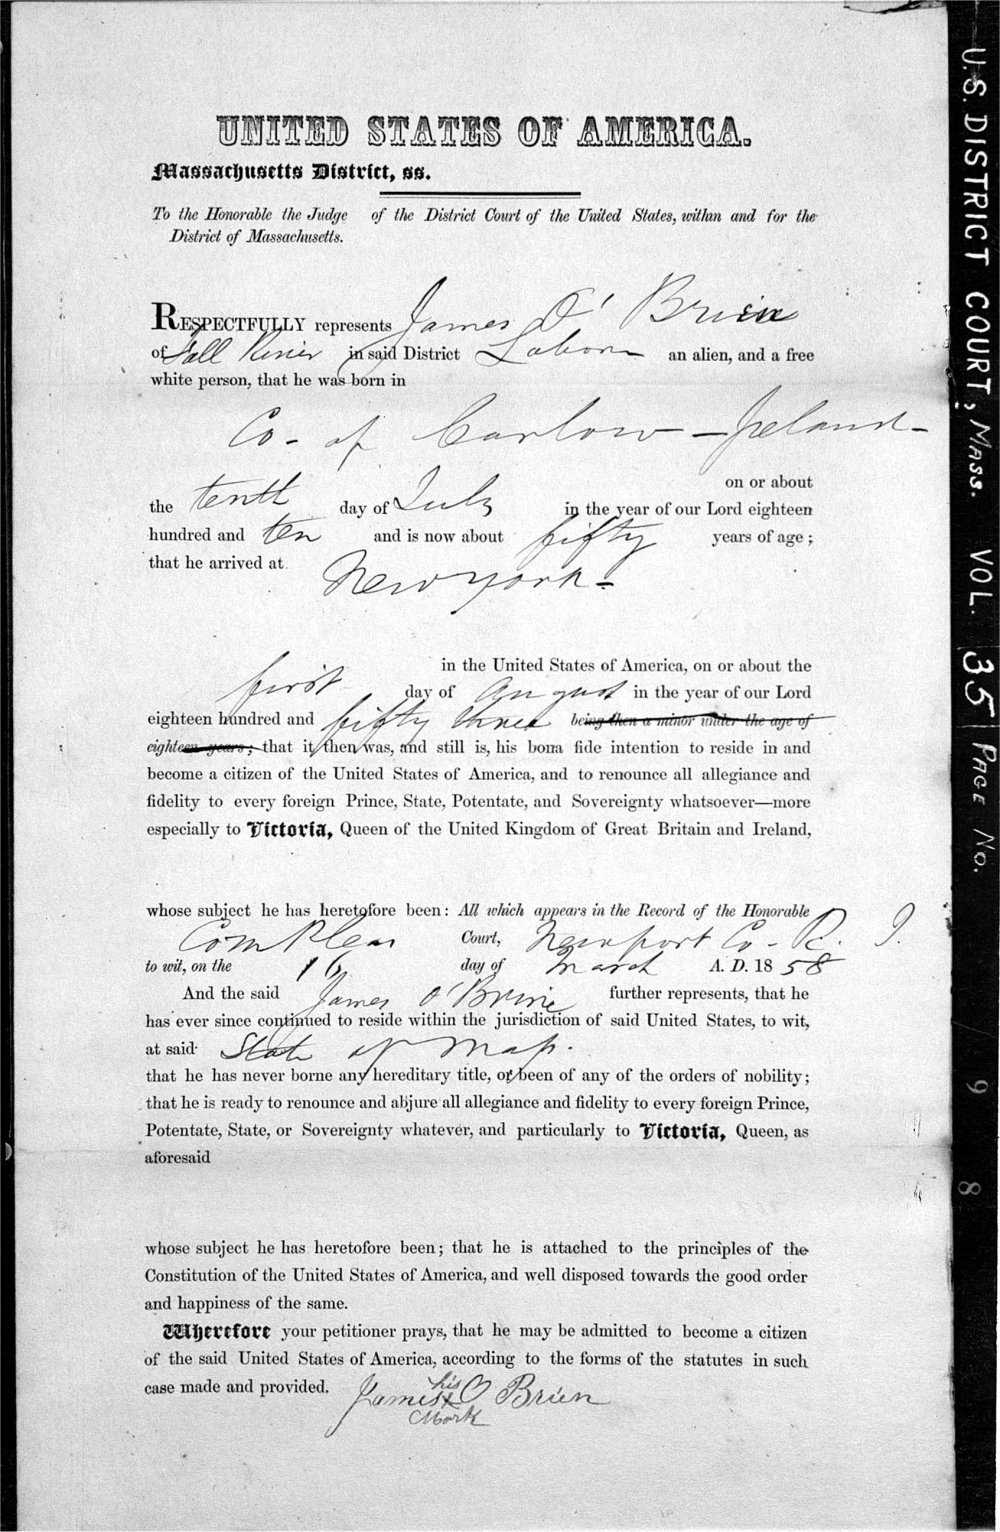 UNITED STATES OF AMERICA.
Massachusetts District, ss.
To the Honorable the Judge of the District Court of the United States, within and for the
District of Massachusetts.
RESPECTFULLY represents James O' Brien
of Fall River in said District Laborer an alien, and a free
white person, that he was born in
Co- of Carlow - Ireland -
on or about
the tenth day of July in the year of our Lord eighteen
hundred and ten and is now about fifty years of age;
that he arrived at New York -
in the United States of America, on or about the
first day of August in the year of our Lord
eighteen hundred and fifty three being then a minor under the age of
eighteen years; that it then was, and still is, his bona fide intention to reside in and
become a citizen of the United States of America, and to renounce all allegiance and
fidelity to every foreign Prince, State, Potentate, and Sovereignty whatsoever—more
especially to Victoria, Queen of the United Kingdom of Great Britain and Ireland,
whose subject he has heretofore been: All which appears in the Record of the Honorable
Com Pleas Court, Newport Co - R. I.
to wit, on the 16 day of March A. D. 18 58
And the said James O'Brine further represents, that he
has ever since continued to reside within the jurisdiction of said United States, to wit,
at said State of Mass.
that he has never borne any hereditary title, or been of any of the orders of nobility;
that he is ready to renounce and abjure all allegiance and fidelity to every foreign Prince,
Potentate, State, or Sovereignty whatever, and particularly to Victoria, Queen, as
aforesaid
whose subject he has heretofore been; that he is attached to the principles of the
Constitution of the United States of America, and well disposed towards the good order
and happiness of the same.
Wherefore your petitioner prays, that he may be admitted to become a citizen
of the said United States of America, according to the forms of the statutes in such
case made and provided.
his
James x O Brien
Mark
U.S. DISTRICT COURT, MASS. VOL. 35 PAGE NO. 98